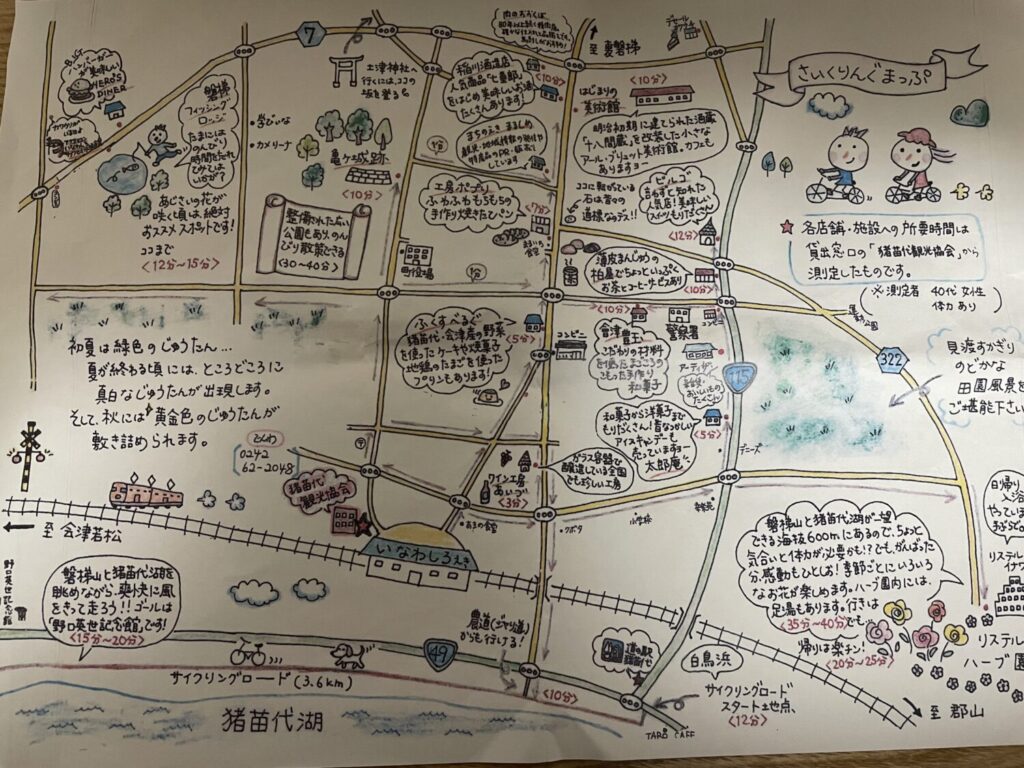 さいくりんぐまっぷ
★各店舗・施設への所要時間は
貸出窓口の「猪苗代観光協会」から
測定したものです。
(※測定者 40代女性
体力あり)
7
至裏磐梯
土津神社へ
行くには、ココの
坂を登る
BIGで
ハンバーガーが
美味しい
HERO'S
DINER
磐梯
フィッシング
ロッジ
たまには
のんびり
時間を忘れ
ひと休み
いかが?
あじさいの花が
咲く頃は絶対
おススメスポットです!
ココまで
<12分〜15分>
・学びいな
・カメリーナ
亀ヶ城跡
<10分>
整備された広い
公園もあり、のん
びり散策できる
<30〜40分>
稲川酒造店
人気商品「七重郎」
をはじめ美味しいお酒が
たくさんあります!
<10分>
<10分>
まちの駅 まるしめ
特産品のPR・販売も
しています
1分
工房ぽっぽり
ふわふわもちもちの
手作り天然酵母パン
<7分>
町役場
1分
<10分>
はじまりの
美術館
明治初期に建てられた酒蔵
「十八間蔵」を改装した小さな
アール・ブリュット美術館、カフェも
ありますョー
ココに転がっている
石は昔々の
道標なのデス!!
ヒルゴ
言わずと知れた
人気店!美味しい
スイーツもりだくさん
<12分>
薄皮まんじゅうの
柏屋でちょっといっぷく
お茶とコーヒーサービスあり
<10分>
<10分>
警察署
コンビニ
運動公園
322
115
貝渡すかぎり
のどかな
田園風景を
ご堪能下さい
初夏は緑色のじゅうたん…
夏が終わる頃には、ところどころに
真白なじゅうたんが出現します。
そして、秋には黄金色のじゅうたんが
敷き詰められます。
ふくすべるぐ
猪苗代・会津産の野菜
を使ったケーキや焼菓子
地鶏のたまごを使った
プリンもあります!
<5分>
コンビニ
會津
豊玉
こだわりの材料
を使ったまごころの
こもった手作り
和菓子
おいしいもの
たくさん
和菓子から洋菓子まで
もりだくさん!昔なつかしい
アイスキャンデーも
売っていますョー
太郎庵
<5分>
デニーズ
でんわ
0242
62-2048
猪苗代
観光協会
いなわしろえき
ワイン工房
あいづ
<3分>
ガラス容器で
醸造している全国
でも珍しい工房
・クボタ
・小学校
至 会津若松
野口英世記念館
磐梯山と猪苗代湖を
眺めながら、爽快に風
をきって走ろう!!ゴールは
「野口英世記念館」です!
<15分〜20分>
サイクリングロード (3.6km)
49
猪苗代湖
農道(ジャリ道)
からも行ける!
<10分>
道の駅
猪苗代
白鳥浜
サイクリングロード
スタート地点、
<12分>
TARO CAFE
至 郡山
磐梯山と猪苗代湖が一望
できる海抜600mにあるので、ちょっと
気合いと体力が必要かも!?でも、がんばった
分、感動もひとしお!季節ごとにいろいろ
なお花が楽しめます。ハーブ園内には、
足湯もあります。行きは
<35分〜40分>でも、
帰りは楽チン!
<20分〜25分>
日帰り
入浴
リステル
リステル
ハーブ園